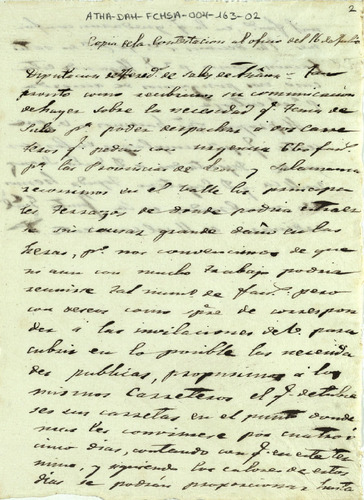 ATHA-DAH-FCHSA-004-163-02
2
Copia de la Contestacion al oficio del 16 de Julio
Diputacion de Hered. de Salin. de Añana = Tan
pronto como recibimos su comunicacion
de hayer sobre la necesidad q.e tenia de
Sal p.a poder despachar á dos carre
teros q.e pedian con urgencia fan.s
p.a las Provincias de Leon y Salamanca
recorrimos en el Valle los principa
les terrazos de donde podria estraerse
sin causar grande daño en las
heras, p.o nos convencimos de que
ni aun con mucho trabajo podria
reunirse tal num.o de fan.s pero
con deseos como p.re de correspon
der á las invitaciones de V. para
cubrir en lo posible las necesida
des publicas, propusimos á los
mismos Carreteros el q.e detubie
sen sus carretas en el punto donde
mas les combiniese por cuatro ó
cinco dias, contando con q.e en este ter
mino, y siguiendo los calores de estos
dias se podrian proporcionar hasta